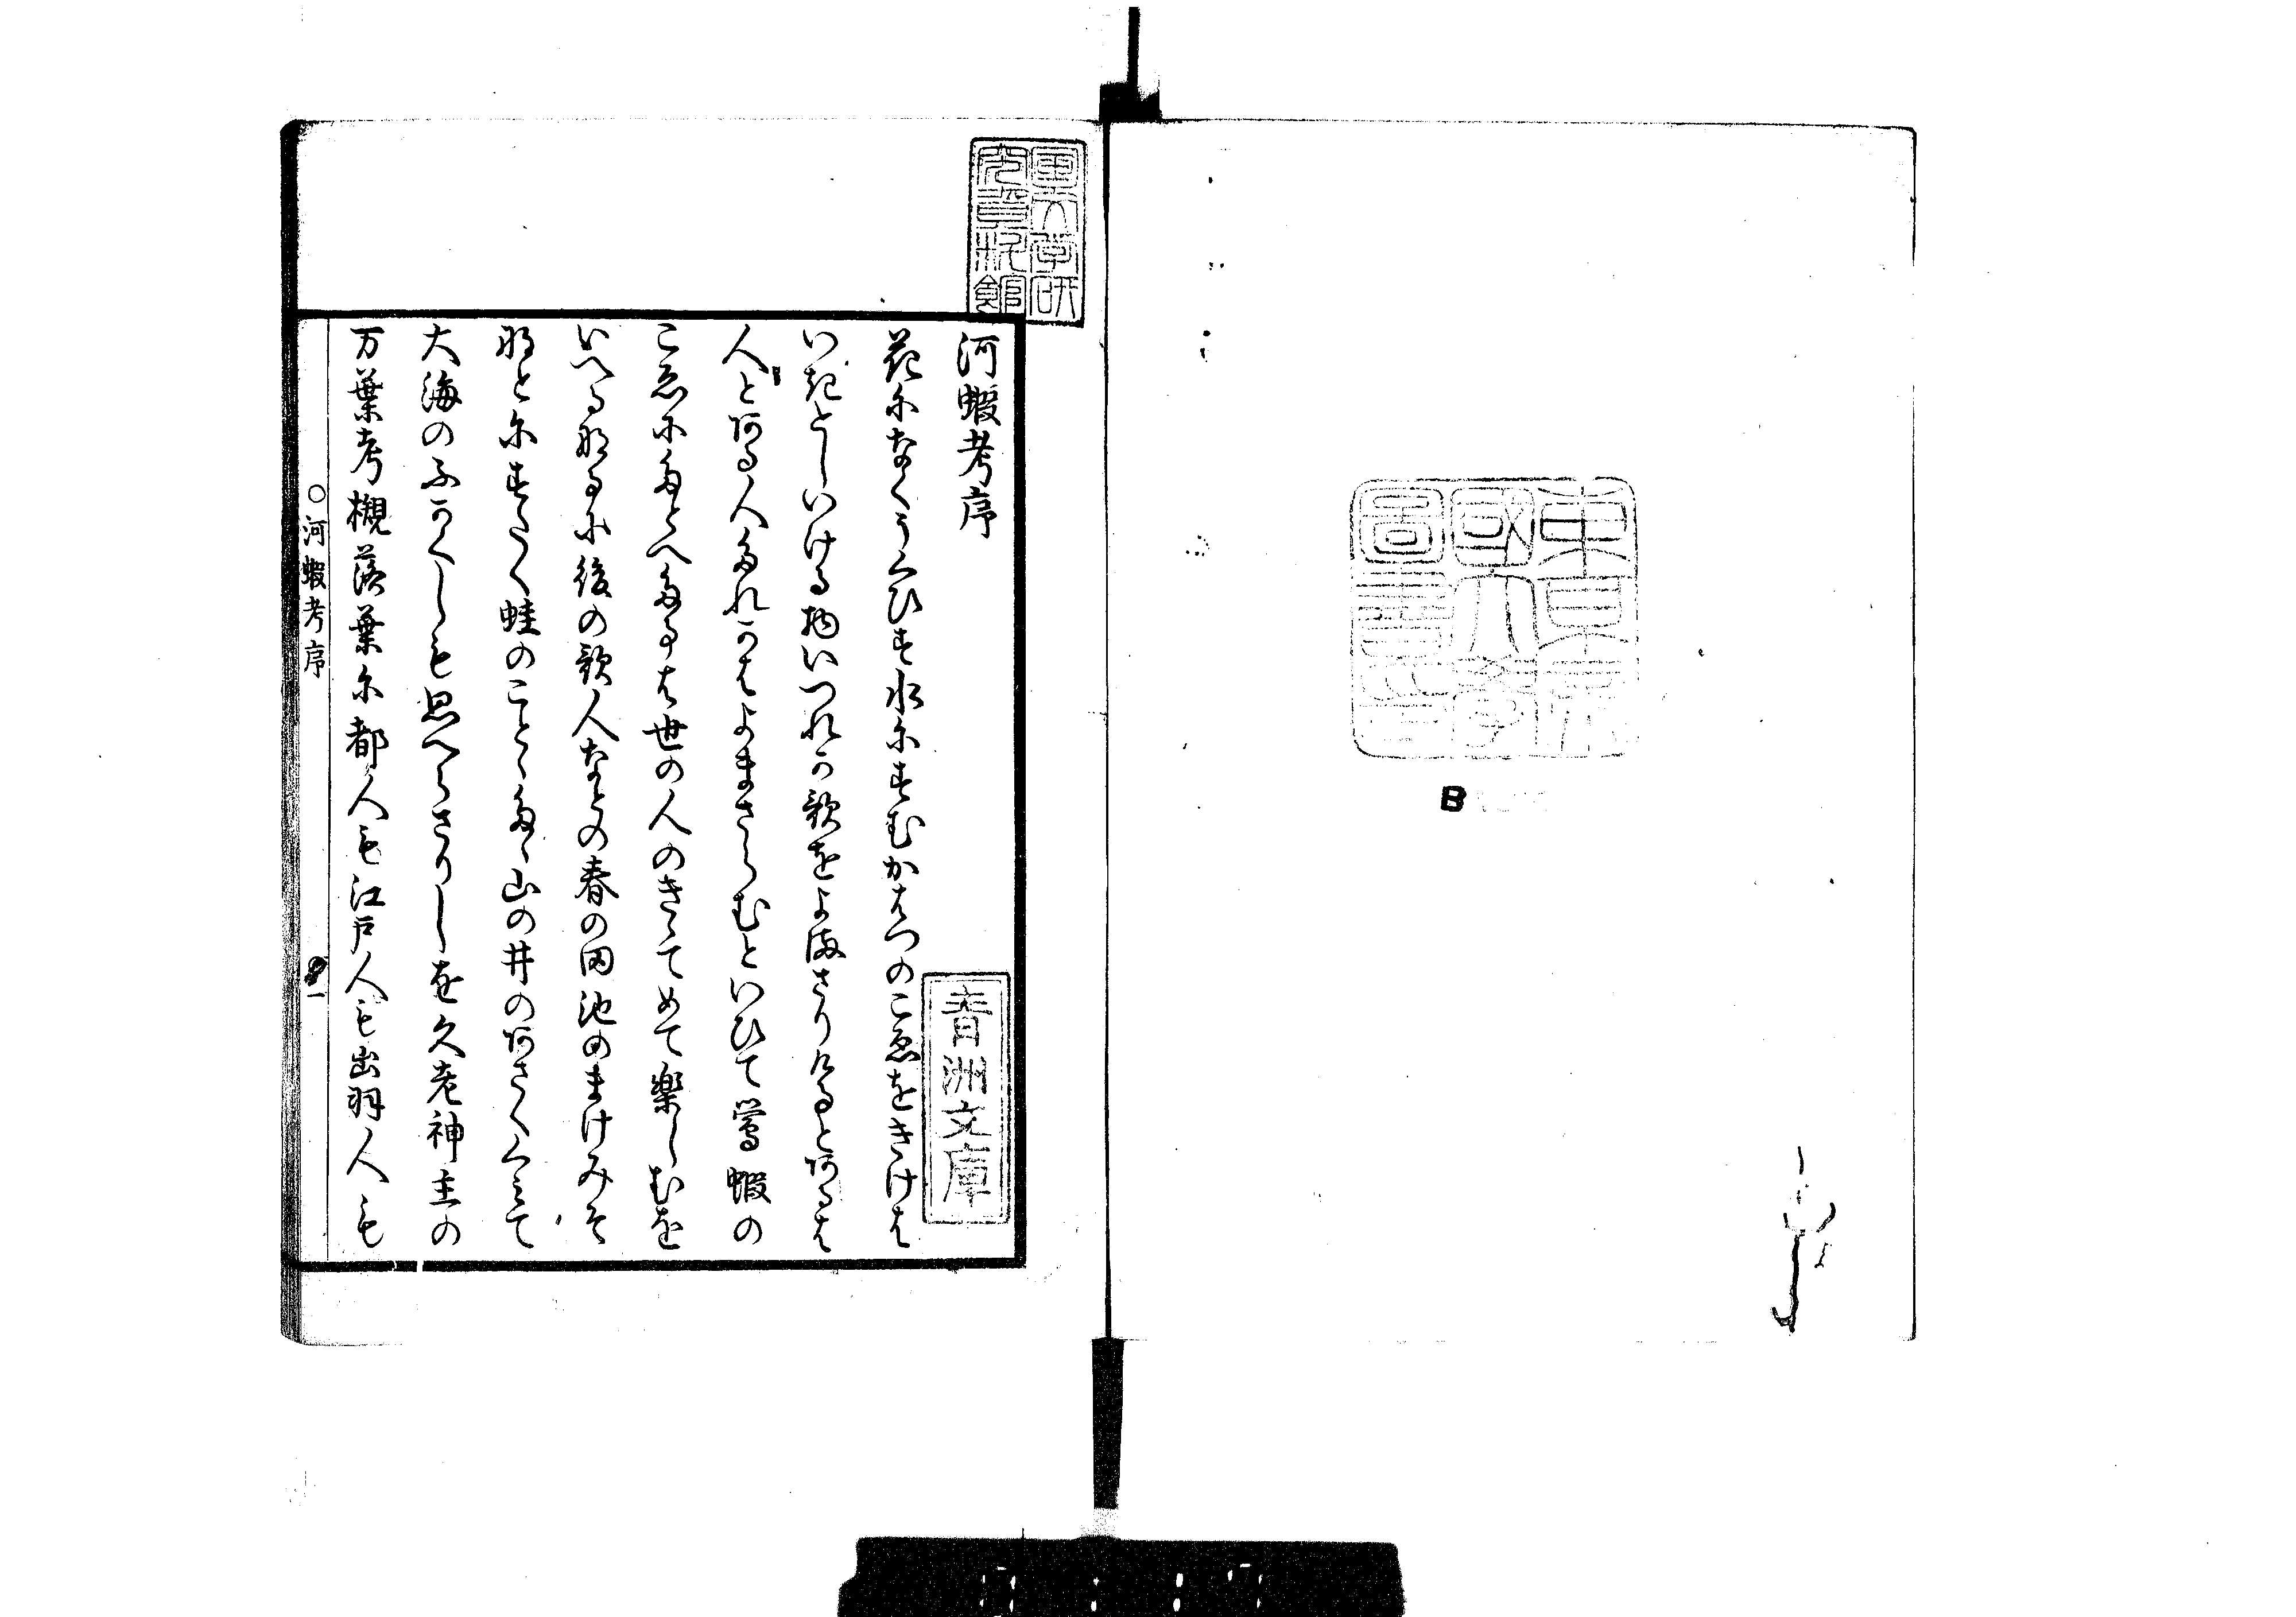 河蝦考序
花になくうくひす水にすむかはつのこゑをきけは
いきとしいける物いつれか歌をよまさりけるとあるは
人とある人たれかはよまさらむといひて鶯蝦の
こゑにたとへたる事は世の人のきゝてめて楽しむを
いへるなるに後の歌人なとの春の田池のまけみそ
なとにすたく蛙のことゝたゝ山の井のあさくくみて
大海のふかくしも思へらさりしを久老神主の
万葉考槻落葉に都人も江戸人も出羽人も
○河蝦考序
一
国文学研
究資料館
青洲文庫
東京帝
國大學
圖書印
B